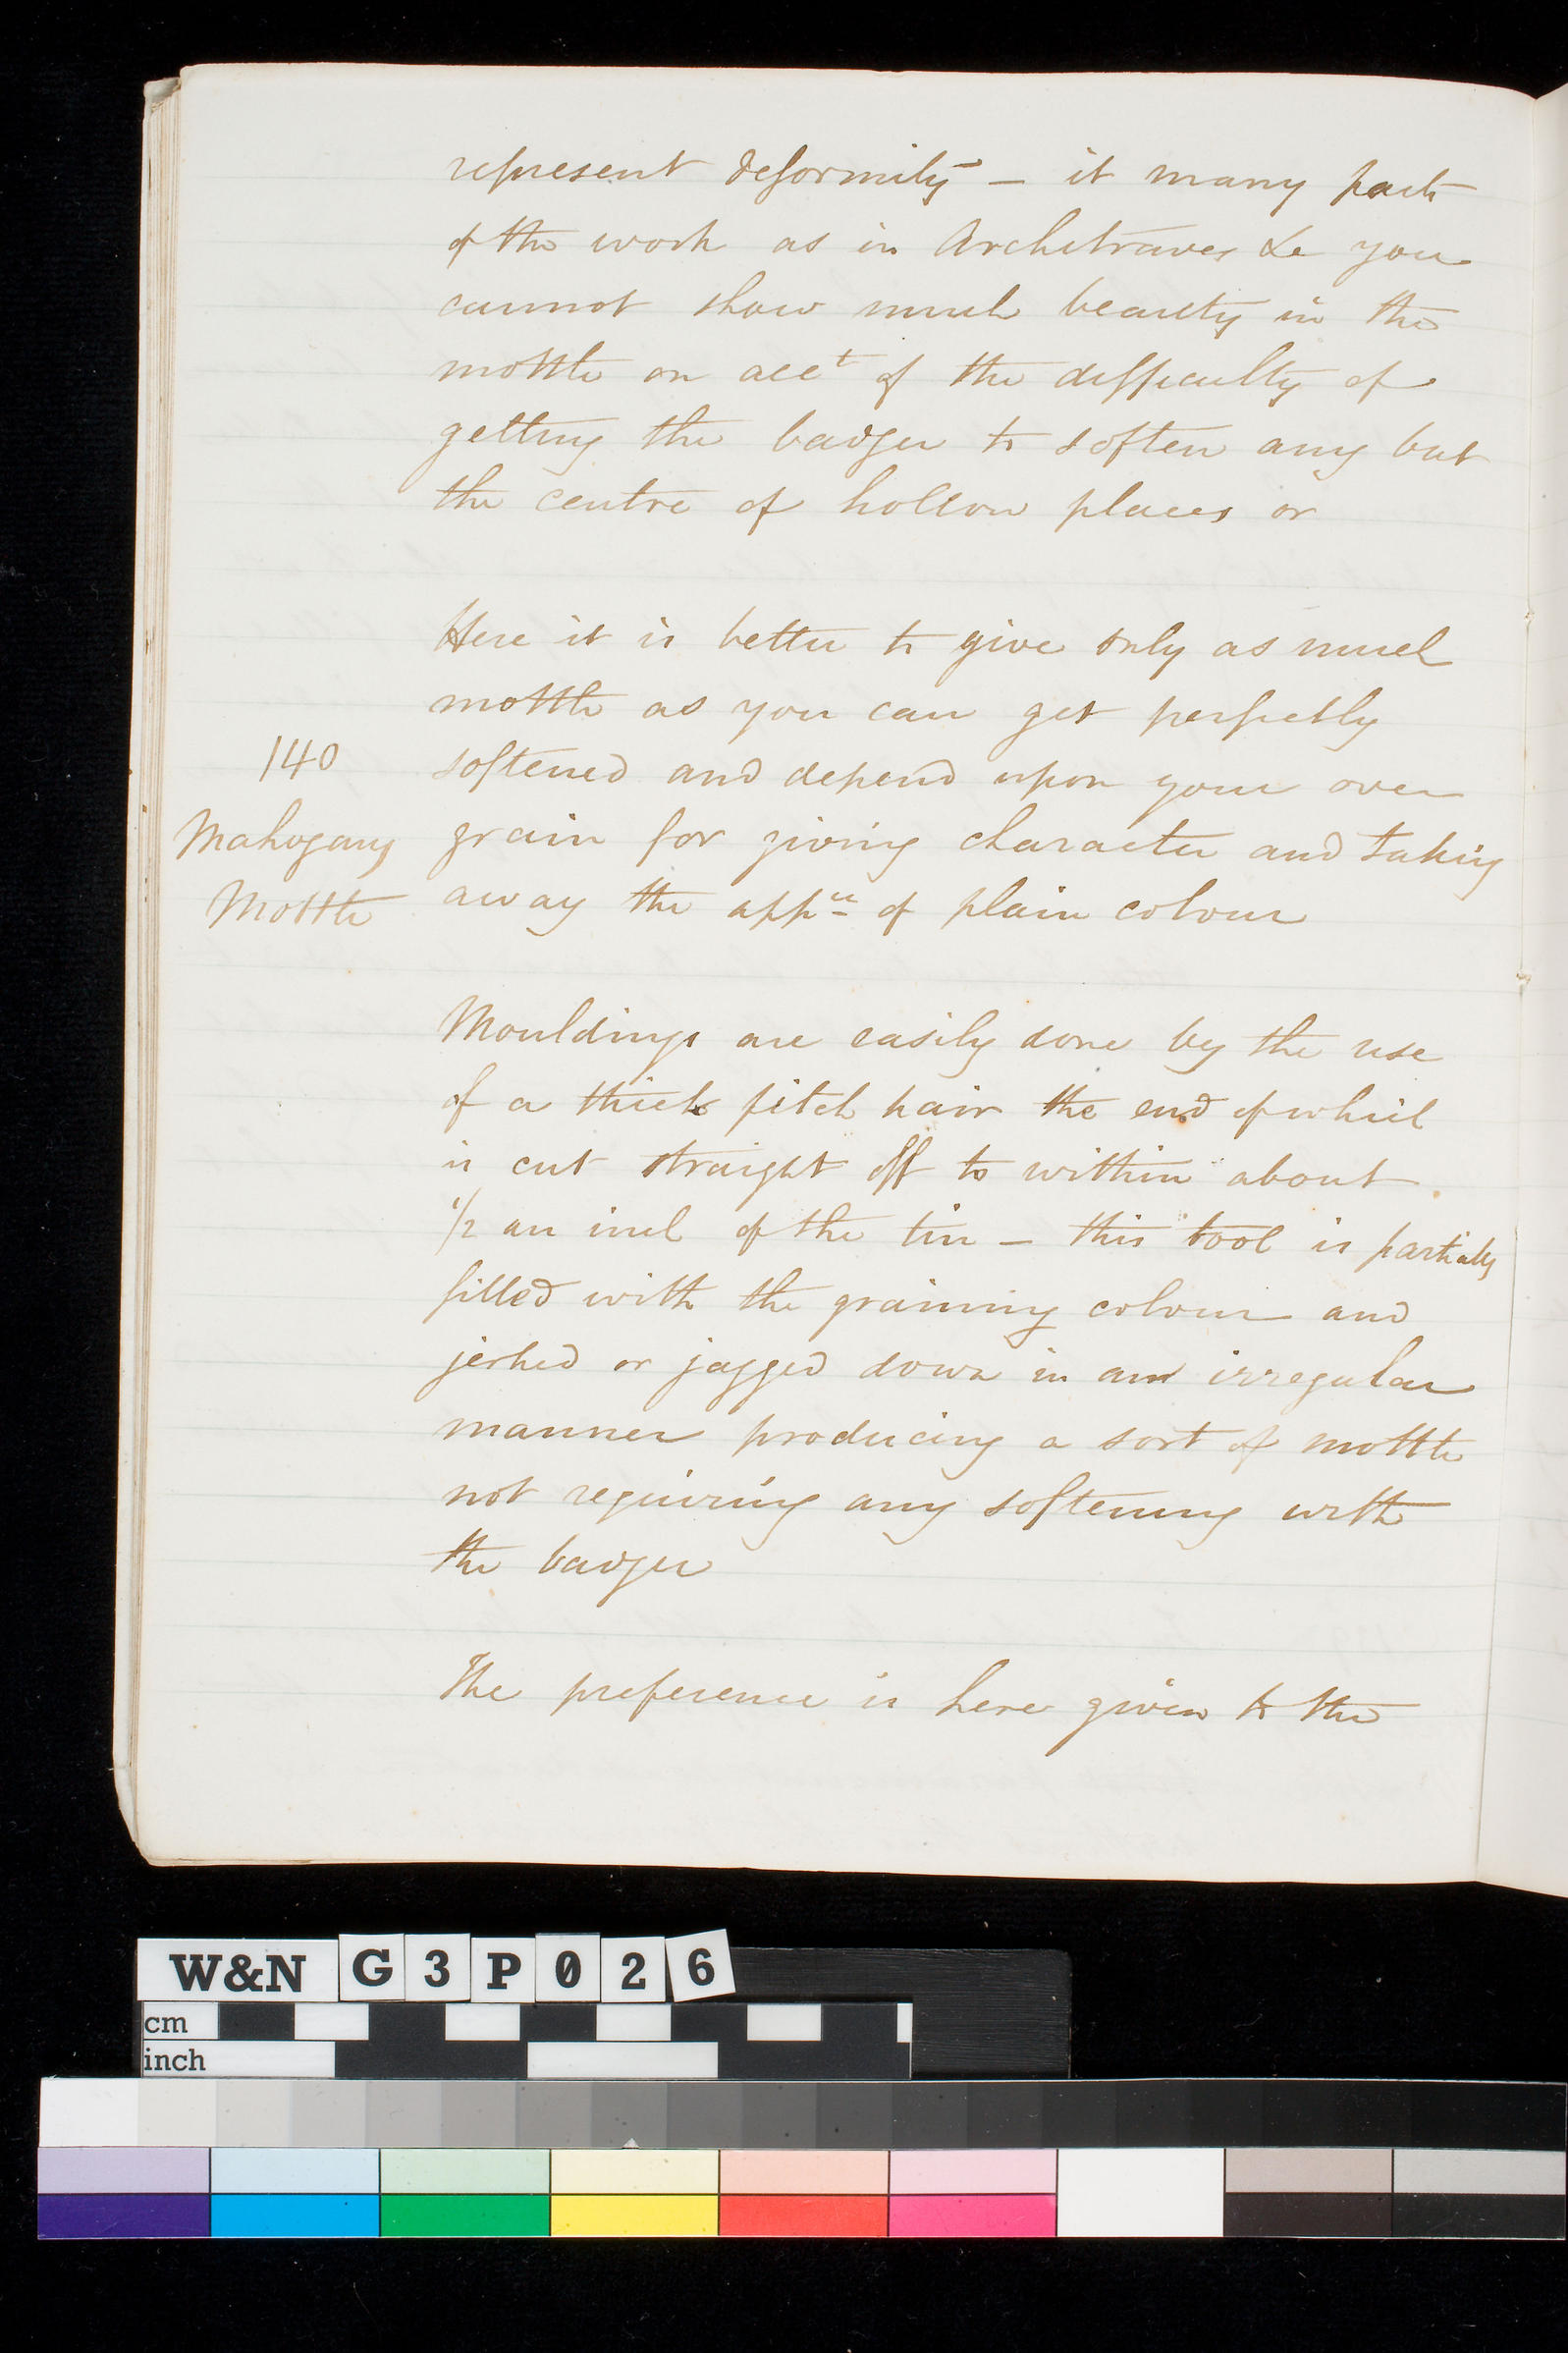 represent deformity – it many parts
of the work as in Architraves &c you
cannot show much beauty in the
mottle on acct of the difficulty of
getting the badger to soften any but
the centre of hollow places or
Here it is better to give only as much
mottle as you can get perfectly
140
softened and depend upon your over
Mahogany
grain for giving character and taking
Mottle
away the appce of plain colour
Mouldings are easily done by the use
of a thick fitch hair the end of which
is cut straight off to within about
1/2 an inch of the tin – this tool is partially
filled with the graining colour and
jerked or jagged down in an irregular
manner producing a sort of mottle
not requiring any softening with
the badger
The preference is here given to the
W&N G3P026
cm
inch